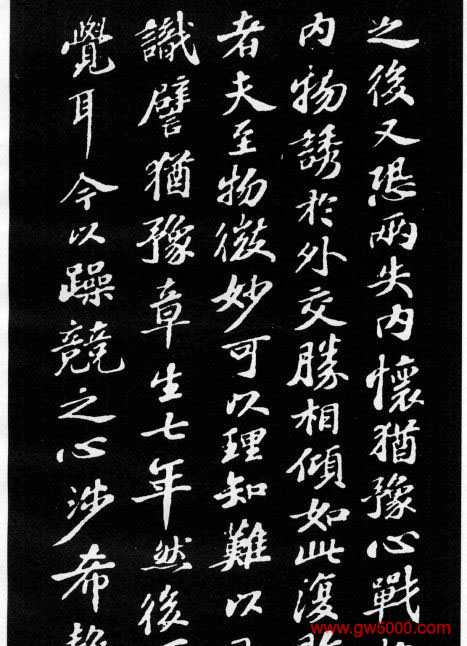 之後又恐兩失内懷猶豫心戰
内物誘於外交勝相傾如此復
者夫至物微妙可以理知難以
識譬猶豫章生七年然後
覺耳今以躁競之心涉希
www.gw5000.com